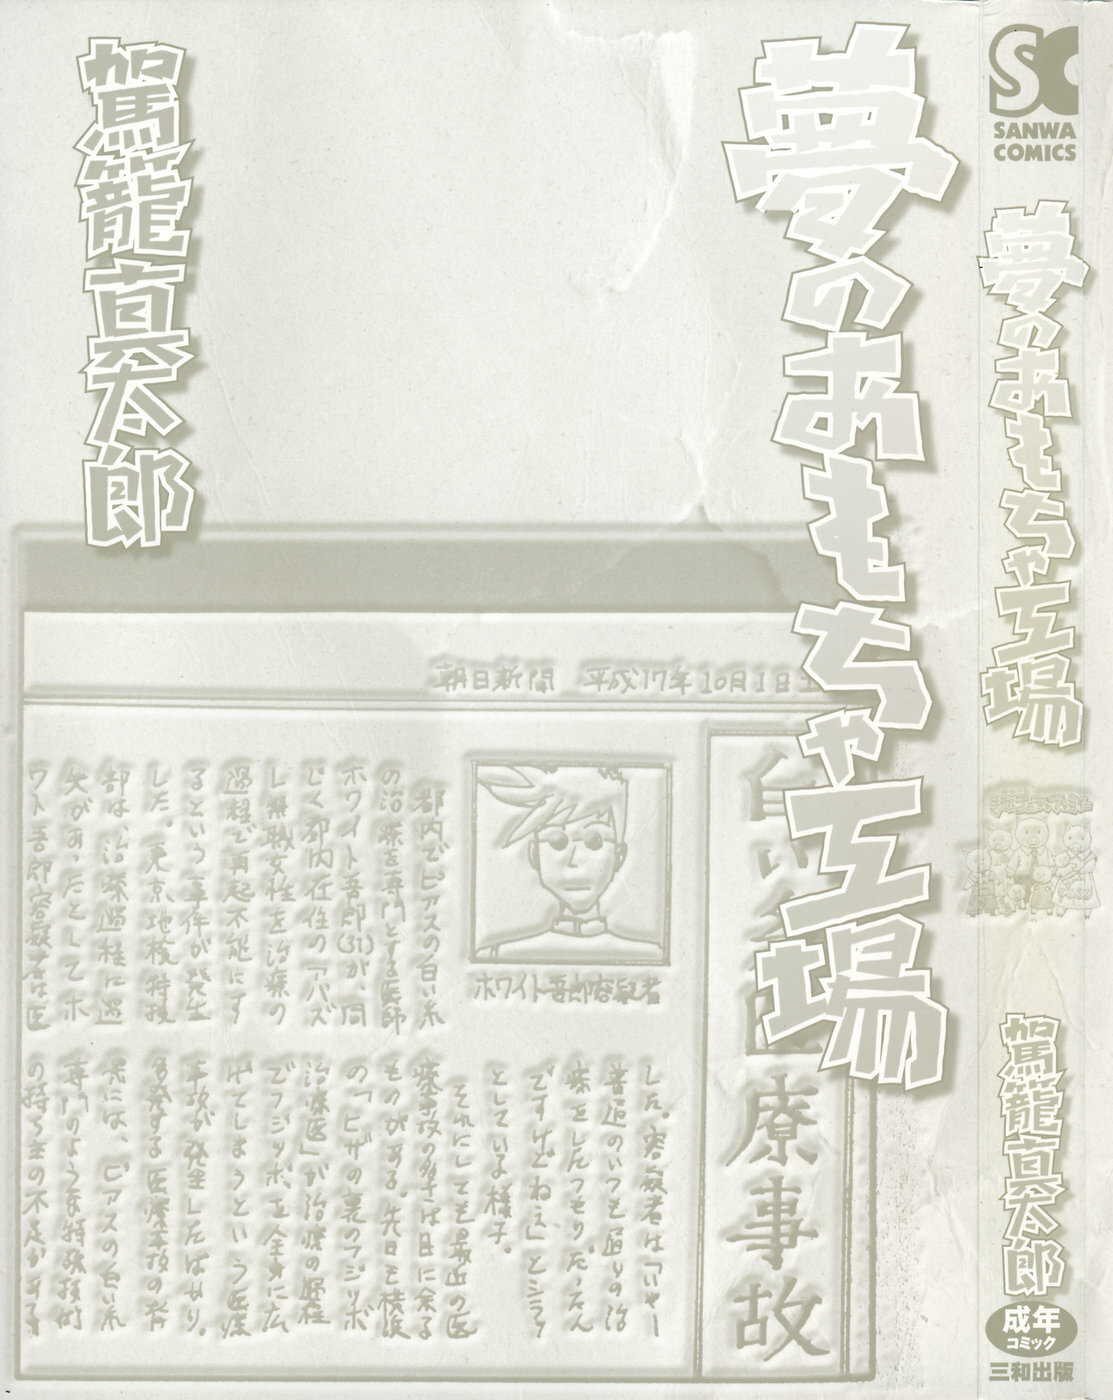 夢のおもちゃ工場
駕籠真太郎
朝日新聞 平成17年10月1日 土
白い糸医療事故
ホワイト吾郎容疑者
都内でピアスの白い糸
の治療を専門とする医師
ホワイト吾郎(31)が、同
じく都内在住のアパズ
し無職女性を治療の
過程で再起不能にす
るという事件が発生
した。東京地検特捜
部は、治療過程に過
失があったとしてホ
ワイト吾郎容疑者は医
した。容疑者は「いやー
普通のいつも通りの治
療をしたつもりだったん
ですけどねぇ」とシラッ
としていた様子。
それにしても最近の医
療事故の多さは目に余る
ものがある。先日も横浜
の「ヒザの裏のフジツボ
治療医」が治療の過程
でフジツボを全身に広
げてしまうという医療
事故が発生したばかり。
多発する医療事故の背
景には、ピアスの白い糸
専門のような特殊技術
の持ち主の不足がある
SC
SANWA
COMICS
夢のおもちゃ工場
駕籠真太郎
成年
コミック
三和出版